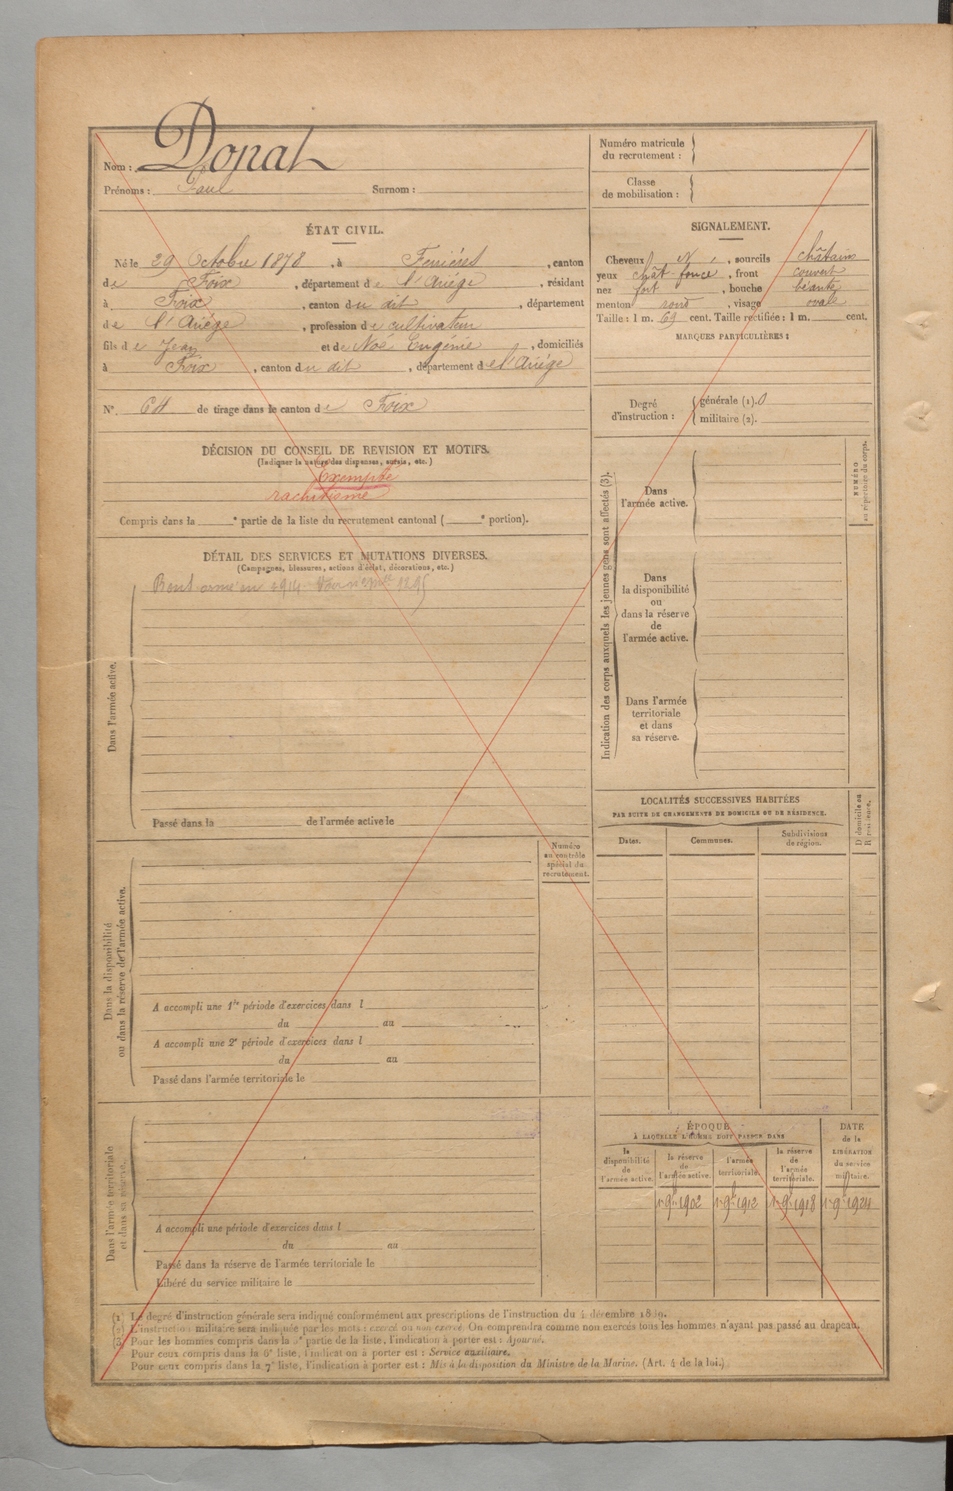 Nom : Donat
Prénoms : Paul Surnom :
ÉTAT CIVIL.
Né le 29 Octobre 1878, à Ferrières, canton
de Foix, département de l'Ariége, résidant
à Foix, canton du dit, département
de l'Ariége, profession de cultivateur
fils de Jean et de Noé Eugénie, domiciliés
à Foix, canton du dit, département de l'Ariége
N°. 64 de tirage dans le canton de Foix
DÉCISION DU CONSEIL DE REVISION ET MOTIFS.
(Indiquer la nature des dispenses, sursis, etc.)
Exempté
rachitisme
Compris dans la ____e partie de la liste du recrutement cantonal (____e portion).
DÉTAIL DES SERVICES ET MUTATIONS DIVERSES.
(Campagnes, blessures, actions d'éclat, décorations, etc.)
1914
Dans l'armée active.
Passé dans la de l'armée active le
Numéro
au contrôle
spécial du
recrutement.
Dans la disponibilité
ou dans la réserve de l'armée active.
A accompli une 1re période d'exercices dans l
du au
A accompli une 2e période d'exercices dans l
du au
Passé dans l'armée territoriale le
Dans l'armée territoriale
et dans sa réserve.
A accompli une période d'exercices dans l
du au
Passé dans la réserve de l'armée territoriale le
Libéré du service militaire le
Numéro matricule
du recrutement :
Classe
de mobilisation :
SIGNALEMENT.
Cheveux N, sourcils châtains
yeux chât foncé, front couvert
nez fort, bouche béante
menton rond, visage ovale
Taille : 1 m. 69 cent. Taille rectifiée : 1 m. cent.
MARQUES PARTICULIÈRES :
Degré
d'instruction :
générale (1). 0
militaire (2).
Indication des corps auxquels les jeunes gens sont affectés (3).
Dans
l'armée active.
Dans
la disponibilité
ou
dans la réserve
de
l'armée active.
Dans l'armée
territoriale
et dans
sa réserve.
NUMÉRO
au répertoire du corps.
LOCALITÉS SUCCESSIVES HABITÉES
PAR SUITE DE CHANGEMENTS DE DOMICILE OU DE RÉSIDENCE.
Dates. Communes. Subdivisions
de région.
D domicile ou
R résidence.
ÉPOQUE
À LAQUELLE L'HOMME DOIT PASSER DANS
la
disponibilité
de
l'armée active.
la réserve
de
l'armée active.
l'armée
territoriale.
la réserve
de
l'armée
territoriale.
DATE
de la
LIBÉRATION
du service
militaire.
1er 9bre 1902 1er 9bre 1912 1er 9bre 1918 1er 9bre 1924
(1) Le degré d'instruction générale sera indiqué conformément aux prescriptions de l'instruction du 4 décembre 1889.
(2) L'instruction militaire sera indiquée par les mots : exercé ou non exercé. On comprendra comme non exercés tous les hommes n'ayant pas passé au drapeau.
(3) Pour les hommes compris dans la partie de la liste, l'indication à porter est : Ajourné.
Pour ceux compris dans la 6e liste, l'indication à porter est : Service auxiliaire.
Pour ceux compris dans la 7e liste, l'indication à porter est : Mis à la disposition du Ministre de la Marine. (Art. 4 de la loi.)